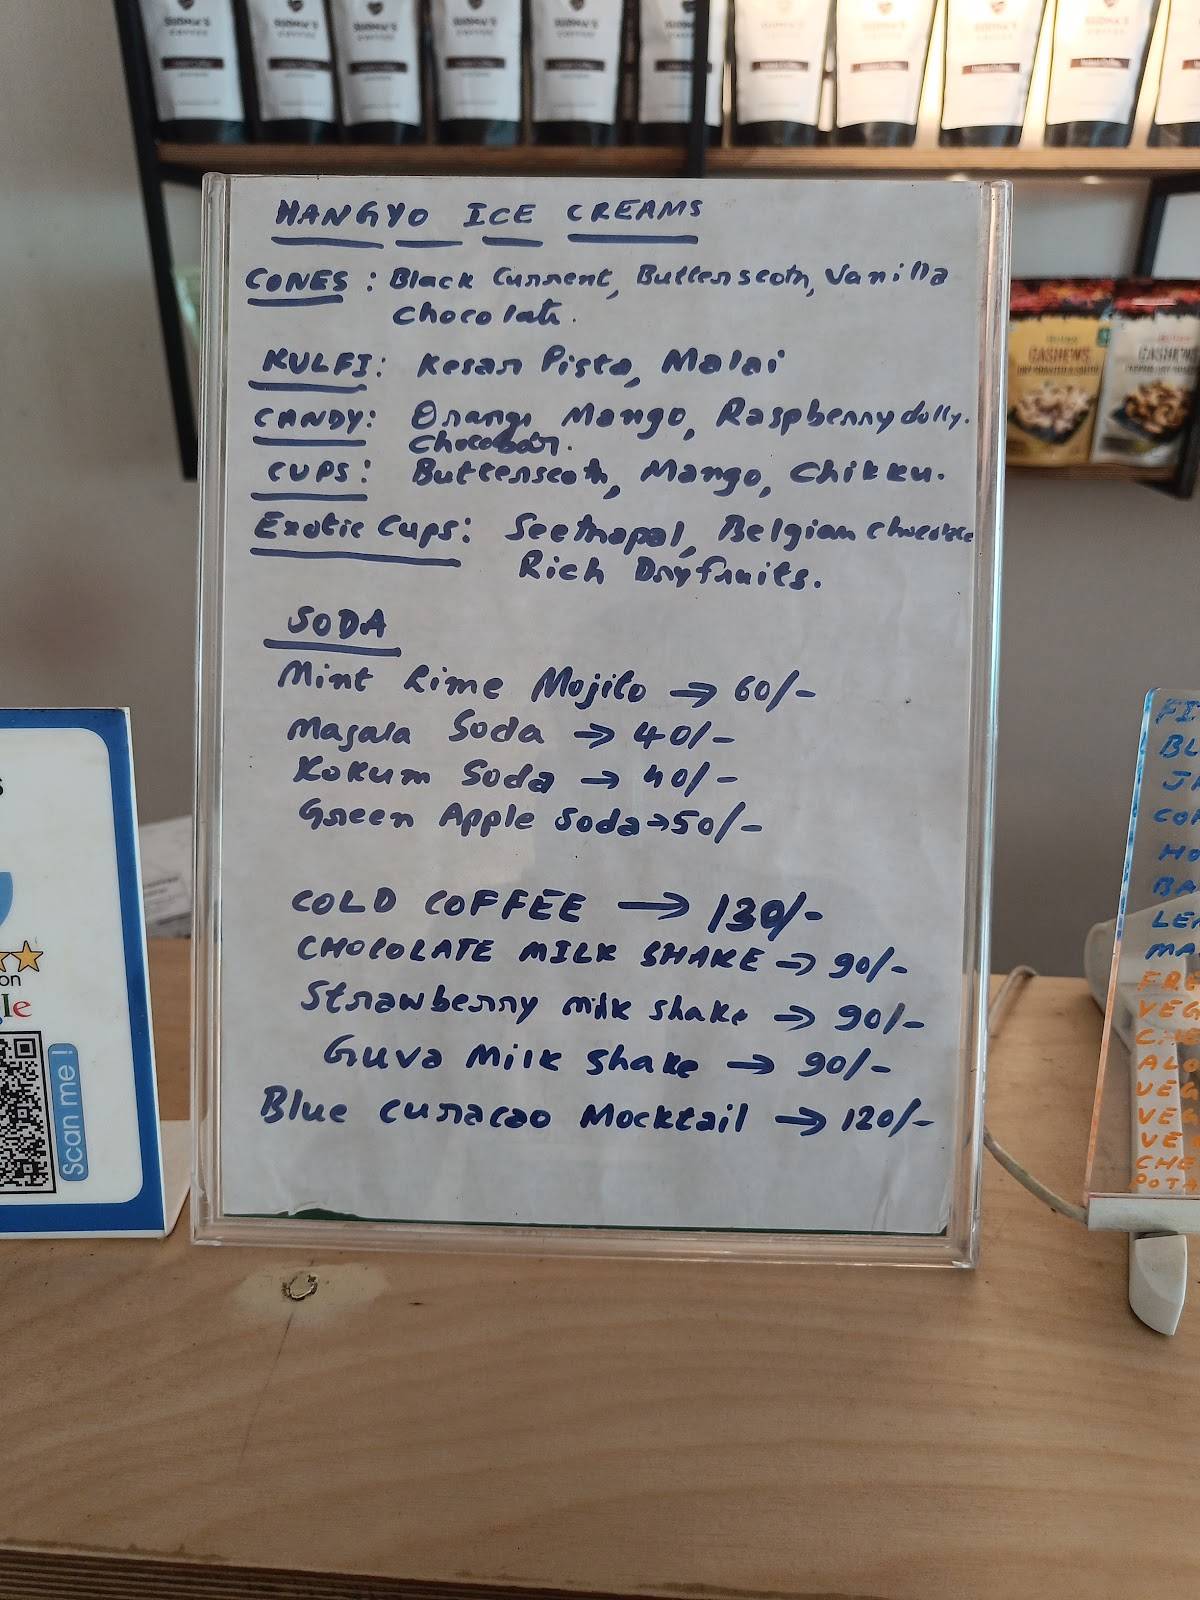 HANGYO ICE CREAMS
CONES: Black Current, Butterscoth, Vanilla
Chocolate.
KULFI: Kesar Pista, Malai
CANDY: Orange Mango, Raspberry dolly.
Chocobar.
CUPS: Butterscoth, Mango, Chikku.
Exotic Cups: Seethapal, Belgian chocolate
Rich Dryfruits.
SODA
Mint Lime Mojito → 60/-
Masala Soda → 40/-
Kokum Soda → 40/-
Green Apple Soda → 50/-
COLD COFFEE → 130/-
CHOCOLATE MILK SHAKE → 90/-
Strawberry milk shake → 90/-
Guva Milk Shake → 90/-
Blue curacao Mocktail → 120/-
CASHEWS
CASHEWS
on
Scan me!
FI
BL
JA
CO
HO
BA
LE
MA
FRE
VEG
CHE
ALO
VEG
VE
VE
CHE
POTA